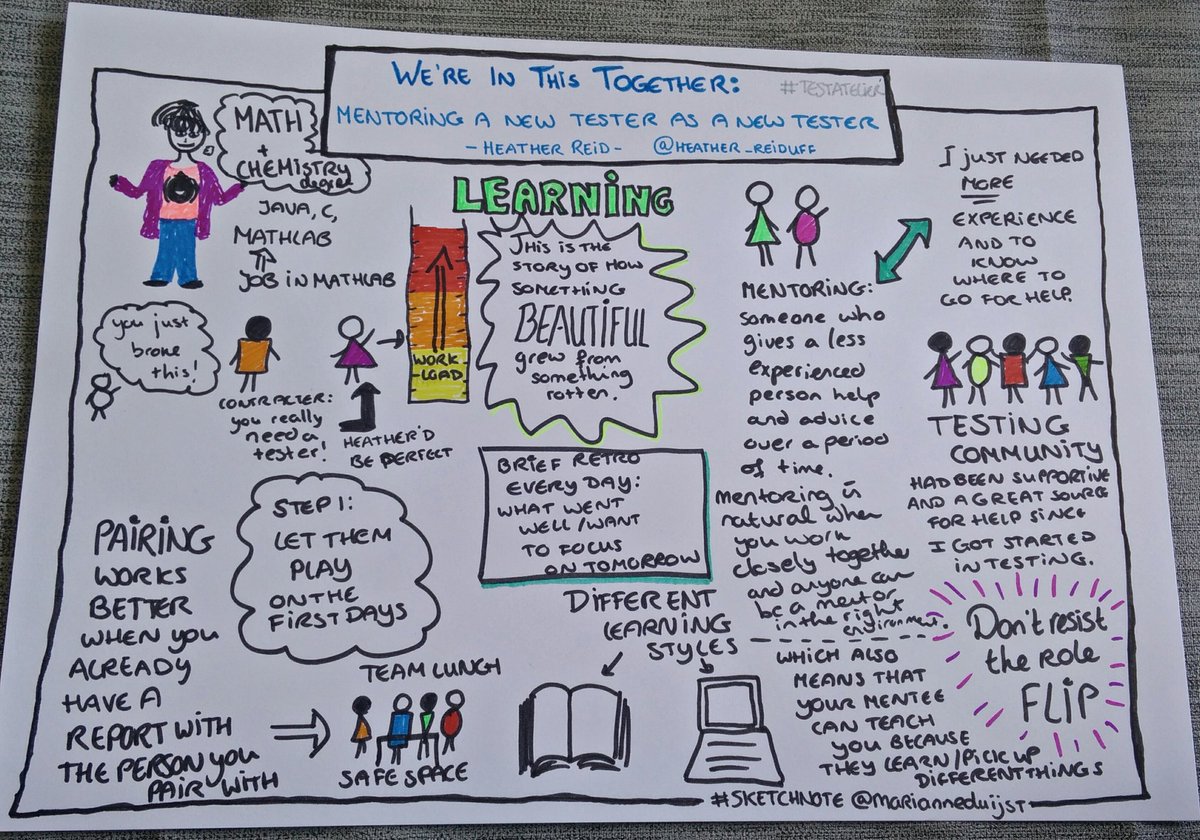 WE'RE IN THIS TOGETHER:
#TESTATELIER
MENTORING A NEW TESTER AS A NEW TESTER
- HEATHER REID - @HEATHER_REIDUFF
MATH
+
CHEMISTRY
degree
JAVA, C,
MATHLAB
JOB IN MATHLAB
you just
broke
this!
CONTRACTER:
you really
need a
tester!
HEATHER'D
BE PERFECT
WORK
-LOAD
LEARNING
THIS IS THE
STORY OF HOW
SOMETHING
BEAUTIFUL
grew from
something
rotten.
MENTORING:
someone who
gives a less
experienced
person help
and advice
over a period
of time.
mentoring is
natural when
you work
closely together
and anyone can
be a mentor
in the right
environment.
WHICH ALSO
MEANS THAT
YOUR MENTEE
CAN TEACH
YOU BECAUSE
THEY LEARN/PICK UP
DIFFERENT THINGS
I JUST NEEDED
MORE
EXPERIENCE
AND TO
KNOW
WHERE TO
GO FOR HELP.
TESTING
COMMUNITY
HAD BEEN SUPPORTIVE
AND A GREAT SOURCE
FOR HELP SINCE
I GOT STARTED
IN TESTING.
Don't resist
the role
FLIP
PAIRING
WORKS
BETTER
WHEN YOU
ALREADY
HAVE A
REPORT WITH
THE PERSON YOU
PAIR WITH
STEP 1:
LET THEM
PLAY
ON THE
FIRST DAYS
TEAM LUNCH
SAFE SPACE
BRIEF RETRO
EVERY DAY:
WHAT WENT
WELL/WANT
TO FOCUS
ON TOMORROW
DIFFERENT
LEARNING
STYLES
#SKETCHNOTE @marianneduijst